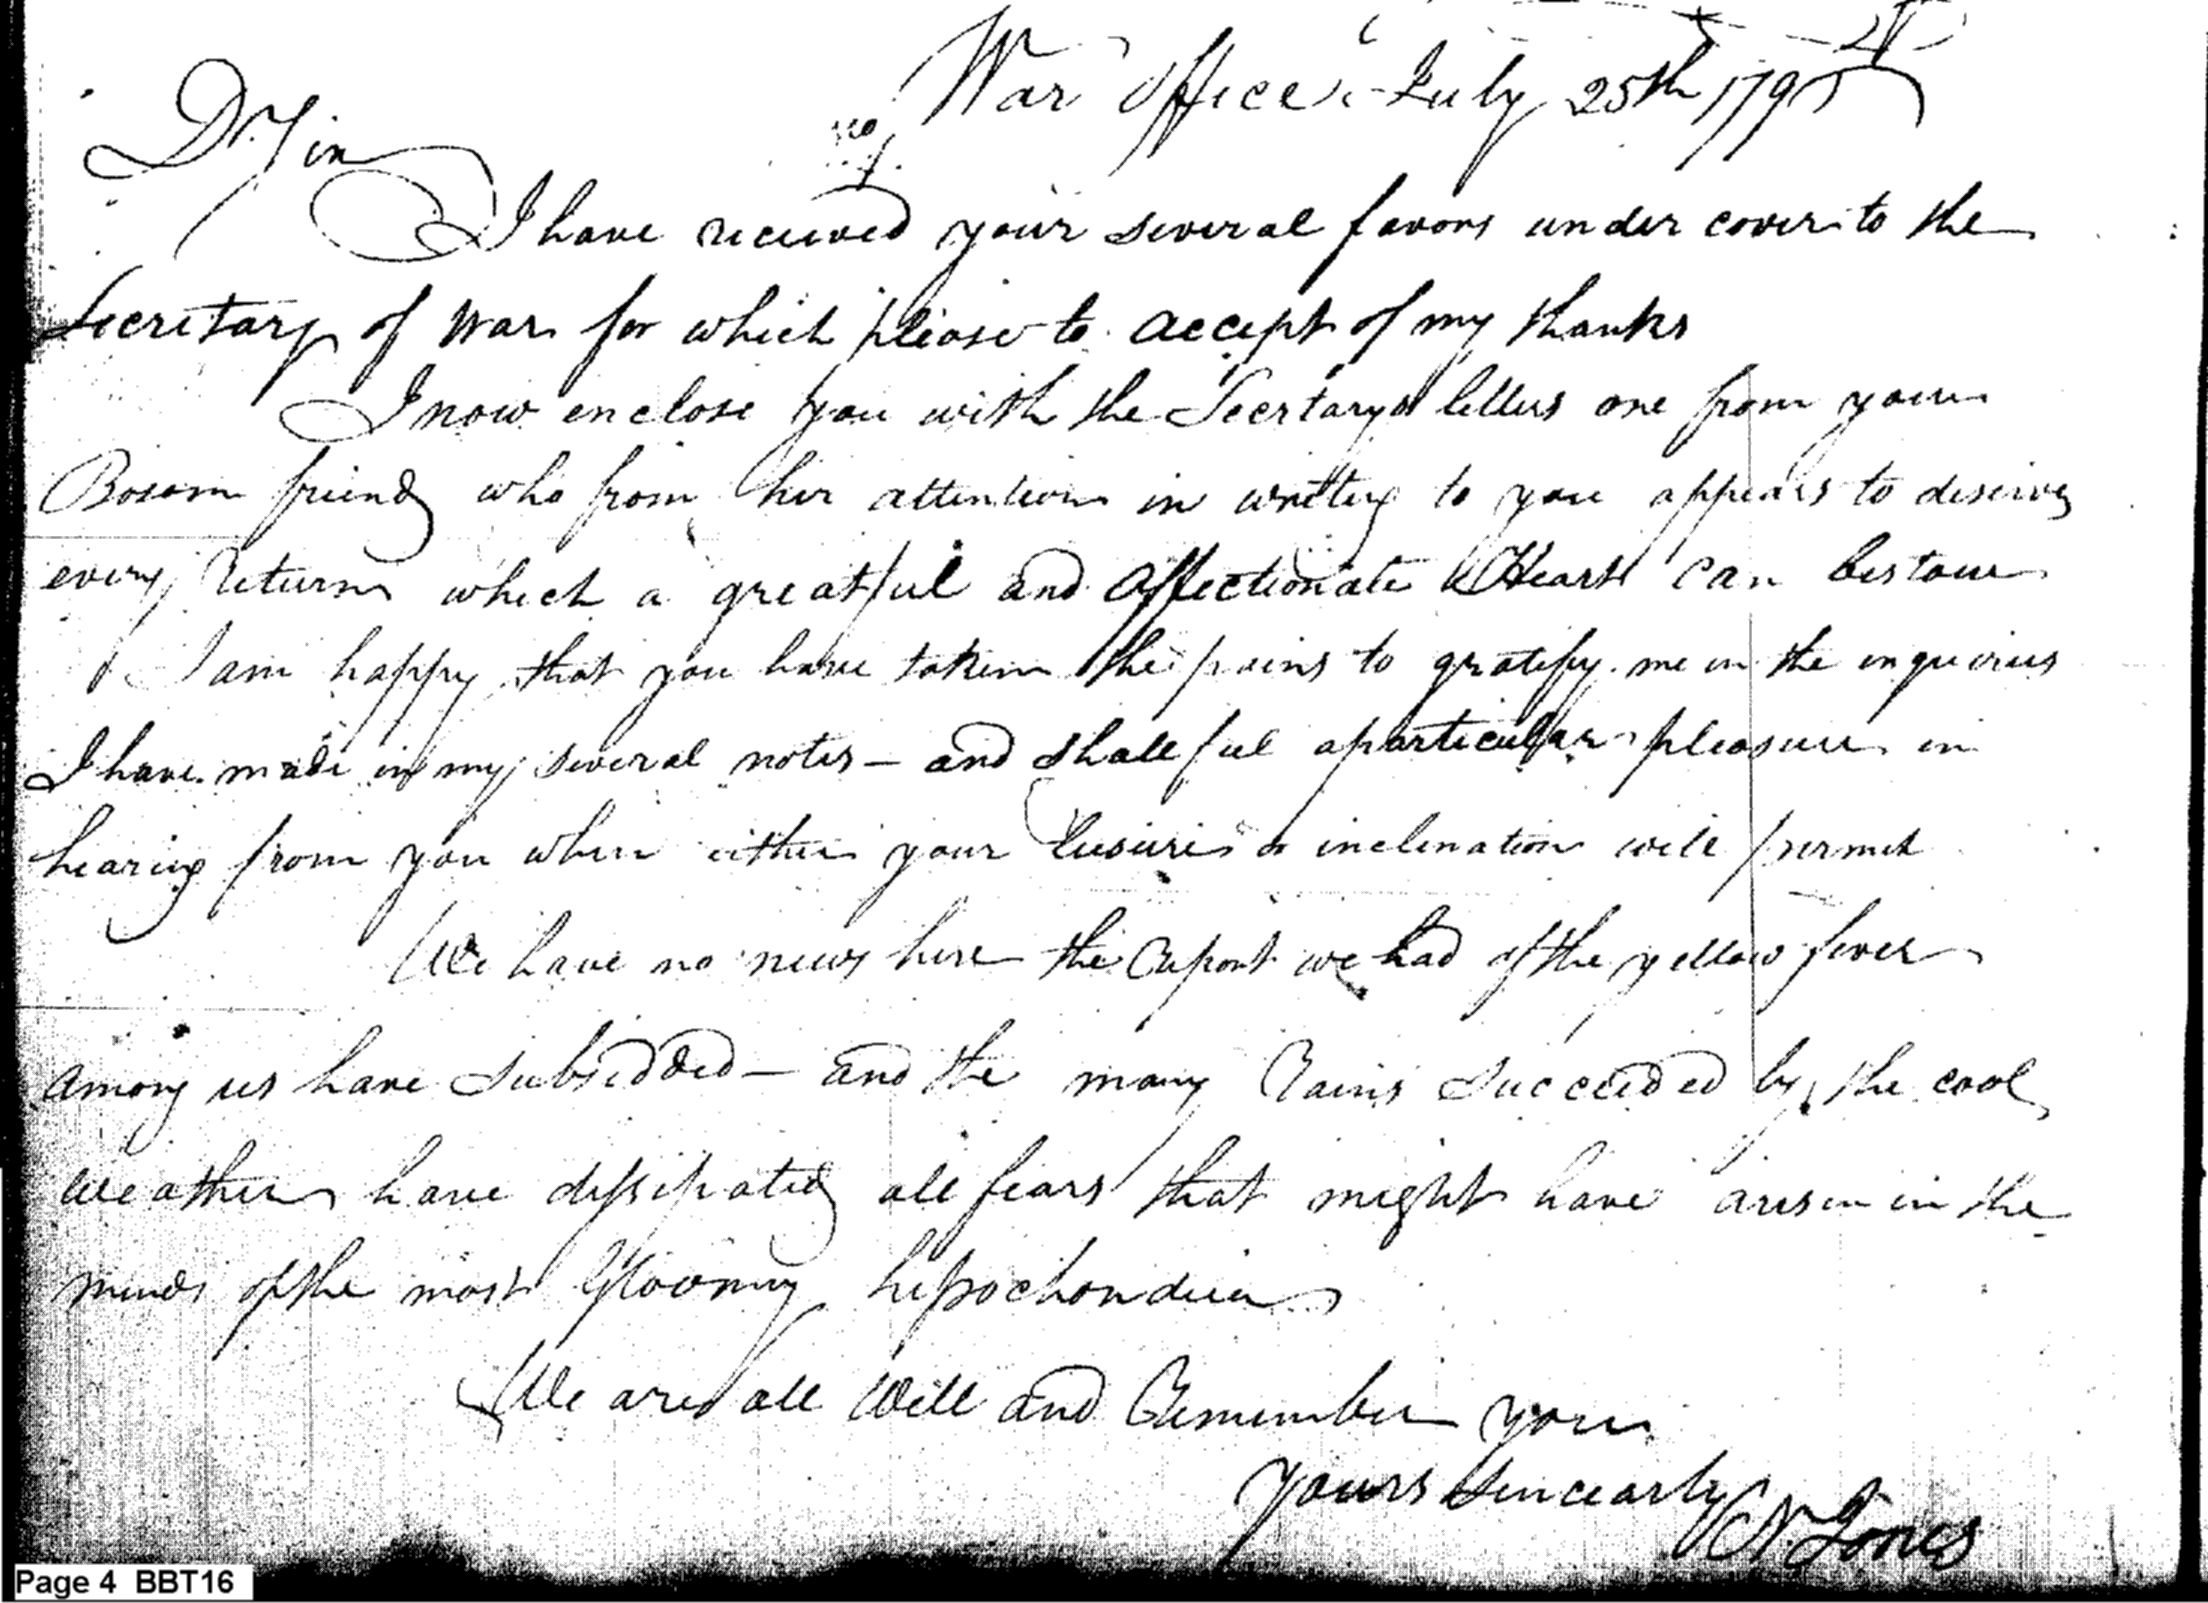 War Office July 25th 1795
Dr Sir
I have received your several favors under cover to the
Secretary of War for which please to accept of my thanks
I now enclose you with the Secrtarys letters one from your
Bosom friend who from her attention in writing to you appears to deserve
every return which a greatful and affectionate Heart can bestow
I am happy that you have taken the pains to gratify me in the inquiries
I have made in my several notes - and shall feel a particular pleasure in
hearing from you when either your leisure or inclination will permit
We have no news here the report we had of the yellow fever
among us have subsidded - and the many rains succeeded by the cool
weather have dissipated all fears that might have arisen in the
minds of the most gloomy
We are all well and remember you
Yours Sincearly
Jones
Page 4 BBT16